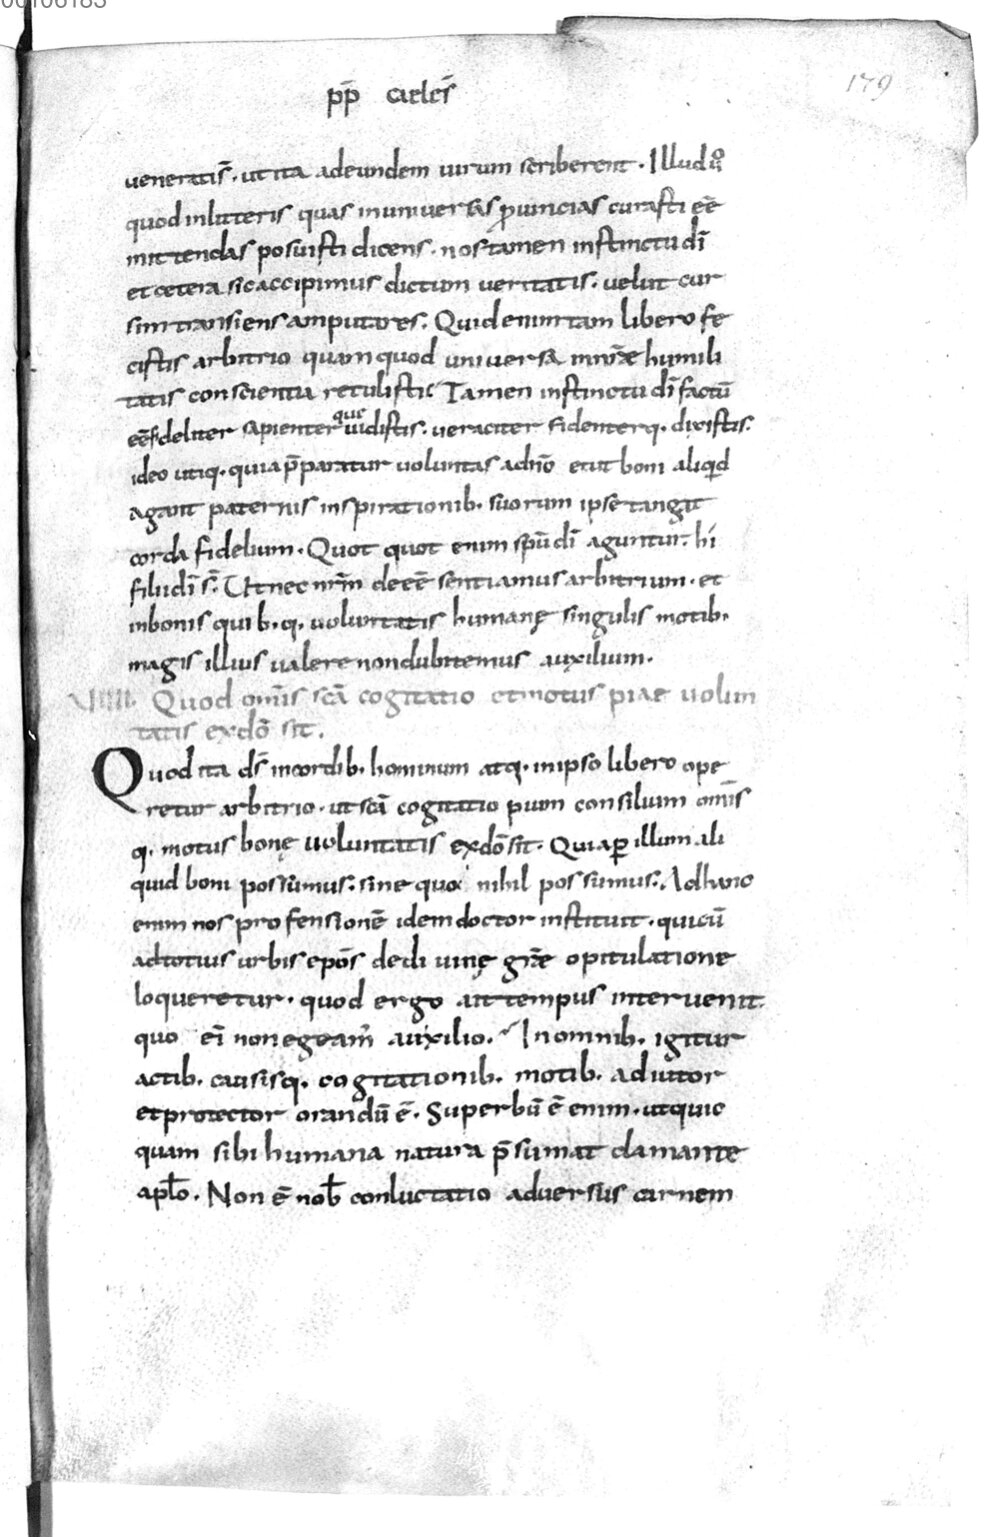 00106183
179
pp̄ caeles̄
veneratis̄. ut ita adeundem virum scriberent. Illud ūo
quod inlitteris quas inuniversas provincias curasti eē
mittendas posuisti dicens. nos tamen instinctu dī
et cetera sic accipimus dictum veritatis. velut cur
sim transiens amputares. Quid enim tam libero fe
cistis arbitrio quam quod universa inn̄rae humili
tatis conscientia retulistis Tamen instinctu dī factū
eē fideliter sapienterque vidistis. veraciter fidenterq. dixistis.
ideo utiq. quia p̄paratur voluntas adn̄o et ut boni aliqid
agant paternis inspirationib. suorum ipse tangit
corda fidelium. Quot quot enim spū dī aguntur. hi
filii dī s̄. Ut nec nr̄m deeē sentiamus arbitrium. et
inbonis quib. q. voluntatis humanę singulis motib.
magis illius valere nondubitemus auxilium.
VIIII. Quod omīs scā cogitatio et motus piae volun
tatis exdō sit.
Quod ita ds̄ incordib. hominum atq. inipso libero ope
retur arbitrio. ut scā cogitatio pium consilium omīs
q. motus bonę voluntatis exdō sit. Quia p̱ illum ali
quid boni possumus. sine quo nihil possumus. Ad hunc
enim nos profensionē idem doctor instituit. qui cū
adtotius urbis epōs dedi vinę gr̄ae opitulatione
loqueretur. quod ergo ait tempus intervenit.
quo eī non egeam̄ auxilio. In omnib. igitur
actib. causisq. cogitationib. motib. adiutor
et protector orandū ē. Superbū ē enim. ut quic
quam sibi humana natura p̄sumat clamante
aplō. Non ē nob̄ conluctatio adversus carnem